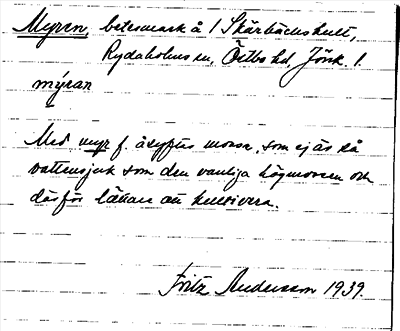 Myren, betesmark å 1 Skärbäckshult,
Rydaholms sn, Östbo hd, Jönk. l.
mýran
Med myr f. åsyftas mosse, som ej är så
vattensjuk som den vanliga högmossen och
därför lättare att kultivera.
Fritz Andersson 1939.